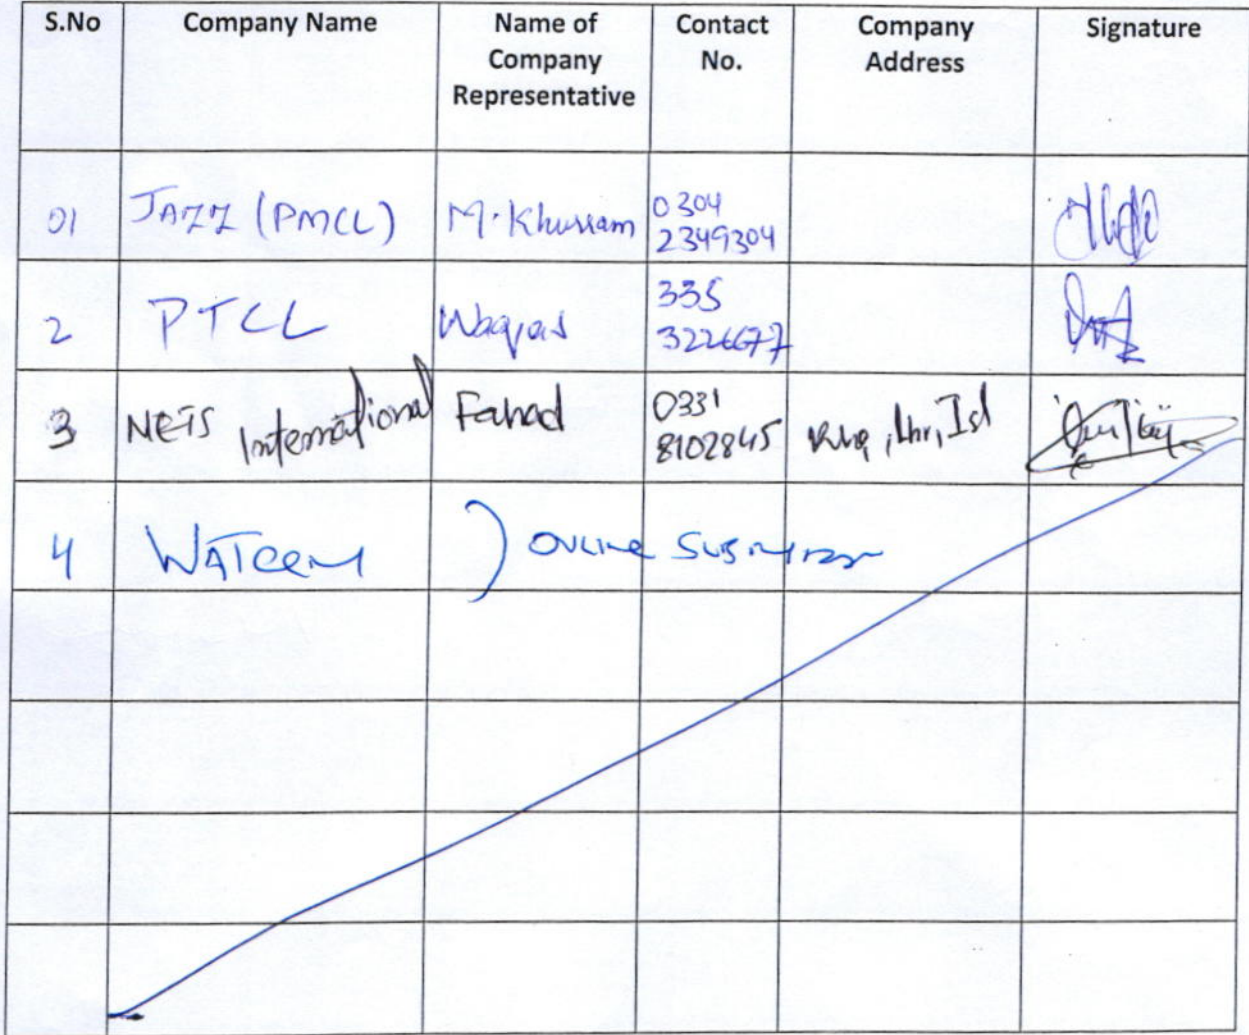 S.No Company Name Name of Company Representative Contact No. Company Address Signature
01 JAZZ (PMCL) M. Khurram 0304 2349304
2 PTCL Waqas 335 3226677
3 NETS International Fahad 0331 8102845 Khi, Lhr, Isl
4 WATEEN ) Online Submission